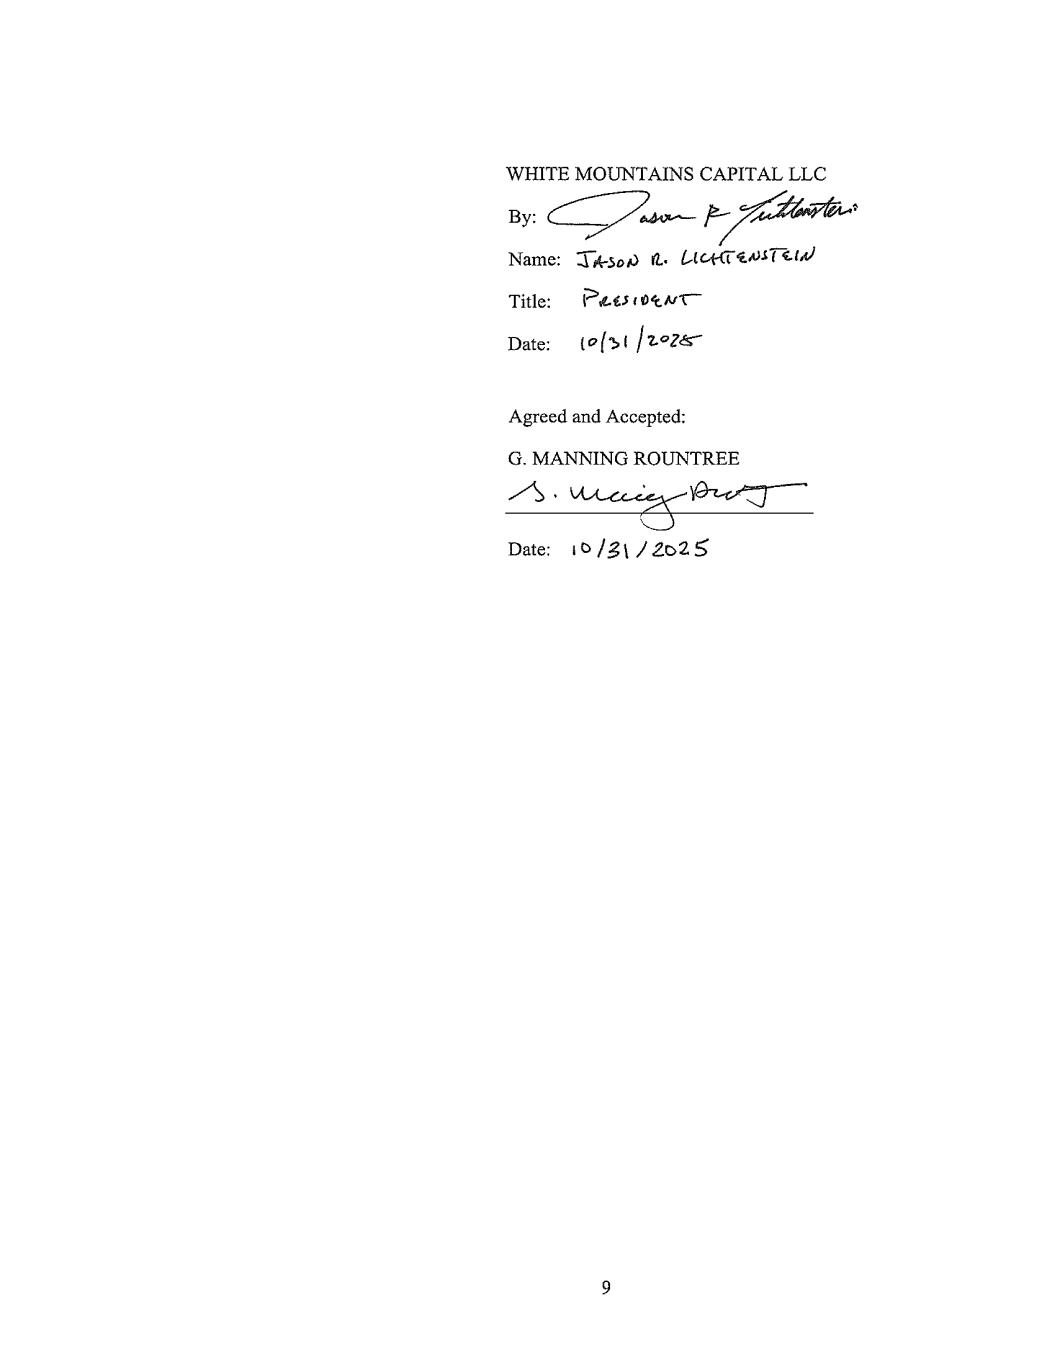 WHITE MOUNTAINS CAPITAL LLC
By: Jason R Lichtenstein
Name: JASON R. LICHTENSTEIN
Title: PRESIDENT
Date: 10/31/2025
Agreed and Accepted:
G. MANNING ROUNTREE
Date: 10/31/2025
9